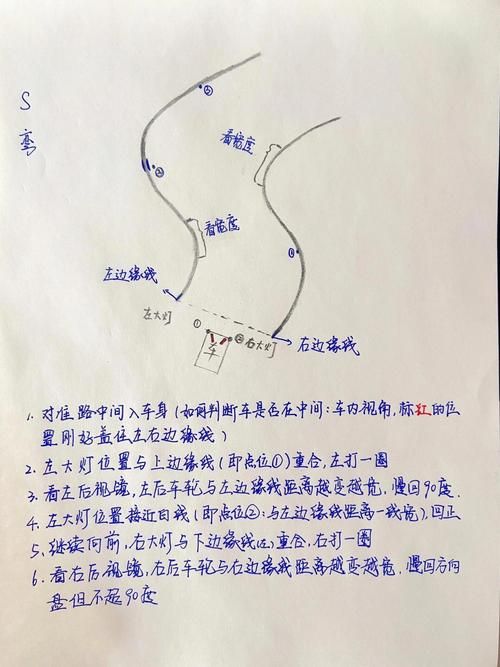 S
弯
③
看宽度
②
看宽度
①
左边缘线
左大灯
①
②右大灯
车
右边缘线
1. 对准路中间入车身（如何判断车是否在中间：车内视角，标红的位
置刚好盖住左右边缘线）
2. 左大灯位置与上边缘线（即点位①）重合，左打一圈
3. 看左后视镜，左后车轮与左边缘线距离越变越宽，慢回90度.
4. 左大灯位置接近白线（即点位②：与左边缘线距离一线宽），回正
5. 继续向前，右大灯与下边缘线重合，右打一圈
6. 看右后视镜，右后车轮与右边缘线距离越变越宽，慢回方向
盘但不超90度